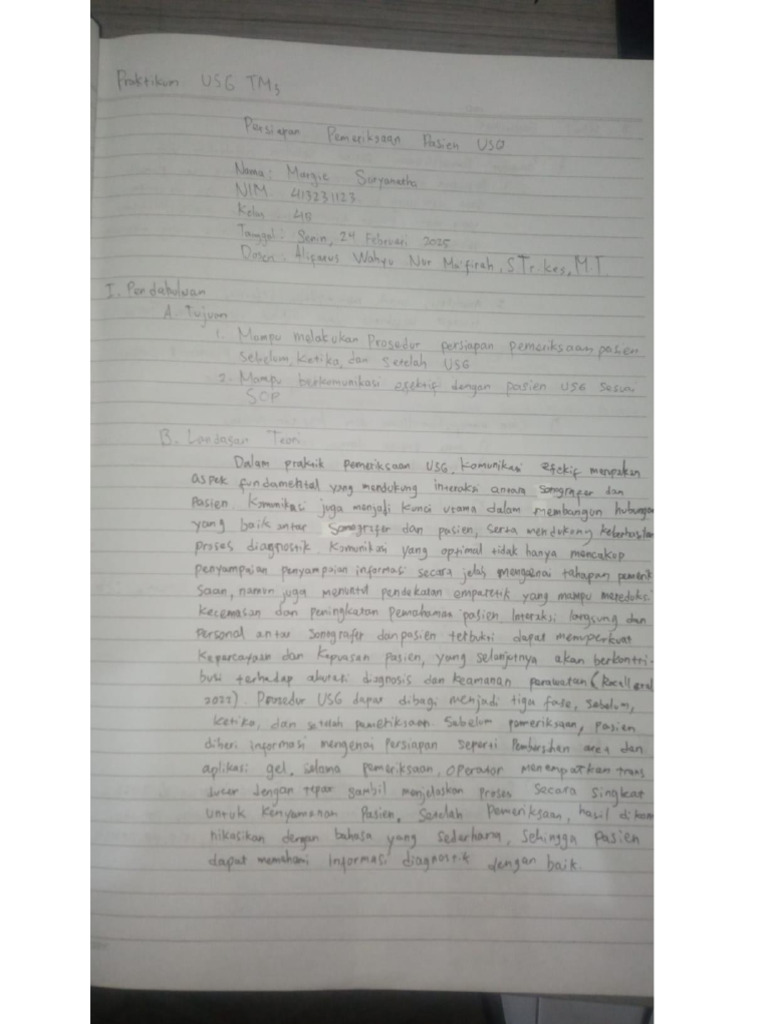 Praktikum USG TM3
Persiapan Pemeriksaan Pasien USG
Nama: Margie Suryanatha
NIM 413231123
Kelas 4B
Tanggal: Senin, 24 Februari 2025
Dosen: Wahyu Nur Ma'firah, STr.Kes, M.T.
I. Pendahuluan
A. Tujuan
1. Mampu melakukan Prosedur persiapan pemeriksaan pasien
Sebelum, Ketika, dan Setelah USG
2. Mampu berkomunikasi efektif dengan pasien USG sesuai
SOP
B. Landasan Teori
Dalam praktik pemeriksaan USG, Komunikasi efektif merupakan
aspek fundamental yang mendukung interaksi antara Sonografer dan
Pasien. Komunikasi juga menjadi kunci utama dalam membangun hubungan
yang baik antar Sonografer dan pasien, serta mendukung keberhasilan
proses diagnostik. Komunikasi yang optimal tidak hanya mencakup
penyampaian penyampaian informasi secara jelas mengenai tahapan pemerik
saan, namun juga menuntut pendekatan emparetik yang mampu mereduksi
kecemasan dan peningkatan pemahaman pasien. Interaksi langsung dan
Personal antar Sonografer dan pasien terbukti dapat memperkuat
Kepercayaan dan Kepuasan Pasien, yang selanjutnya akan berkontri-
busi terhadap akurasi diagnosis dan keamanan perawatan
2022). Prosedur USG dapat dibagi menjadi tiga fase, sebelum,
ketika, dan setelah pemeriksaan. Sebelum pemeriksaan, pasien
diberi informasi mengenai Persiapan seperti Pembersihan area dan
aplikasi gel. selama pemeriksaan, operator menempatkan trans
ducer dengan tepat sambil menjelaskan proses secara singkat
untuk Kenyamanan Pasien. Setelah Pemeriksaan, hasil dikomu
nikasikan dengan bahasa yang sederhana, sehingga Pasien
dapat memahami Informasi diagnostik dengan baik.